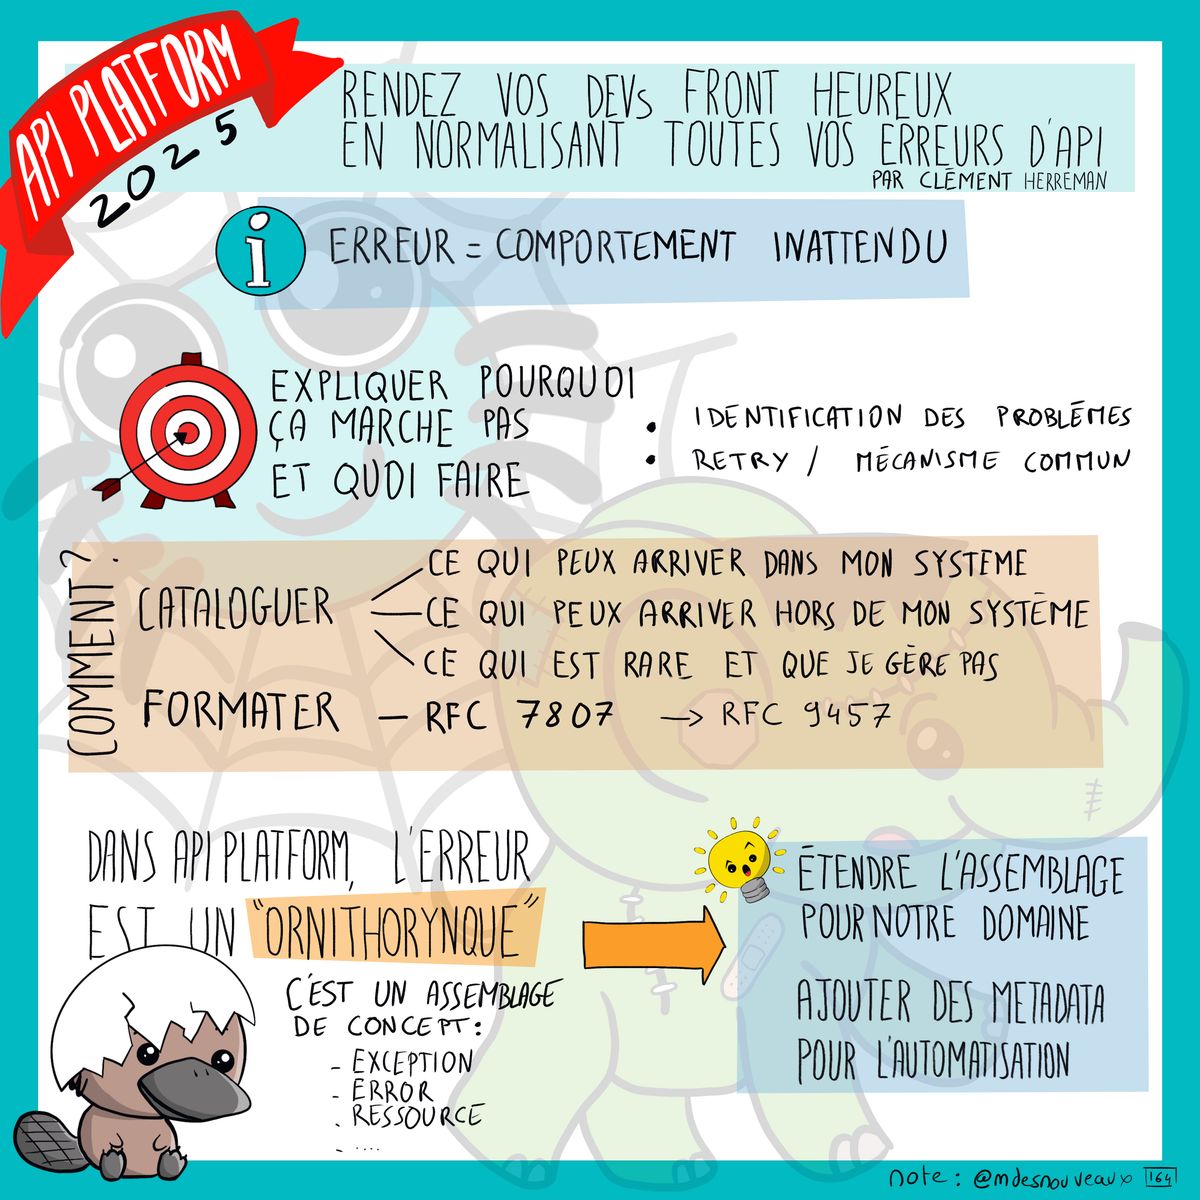 API PLATFORM
2025
RENDEZ VOS DEVs FRONT HEUREUX
EN NORMALISANT TOUTES VOS ERREURS D'API
PAR CLÉMENT HERREMAN
i
ERREUR = COMPORTEMENT INATTENDU
EXPLIQUER POURQUOI
ÇA MARCHE PAS
ET QUOI FAIRE
• IDENTIFICATION DES PROBLÈMES
• RETRY / MÉCANISME COMMUN
COMMENT ?
CATALOGUER
CE QUI PEUX ARRIVER DANS MON SYSTEME
CE QUI PEUX ARRIVER HORS DE MON SYSTÈME
CE QUI EST RARE ET QUE JE GÈRE PAS
FORMATER – RFC 7807 → RFC 9457
DANS API PLATFORM, L'ERREUR
EST UN "ORNITHORYNQUE"
C'EST UN ASSEMBLAGE
DE CONCEPT :
- EXCEPTION
- ERROR
- RESSOURCE
- ....
ÉTENDRE L'ASSEMBLAGE
POUR NOTRE DOMAINE
AJOUTER DES METADATA
POUR L'AUTOMATISATION
note : @mdesnouveaux 164